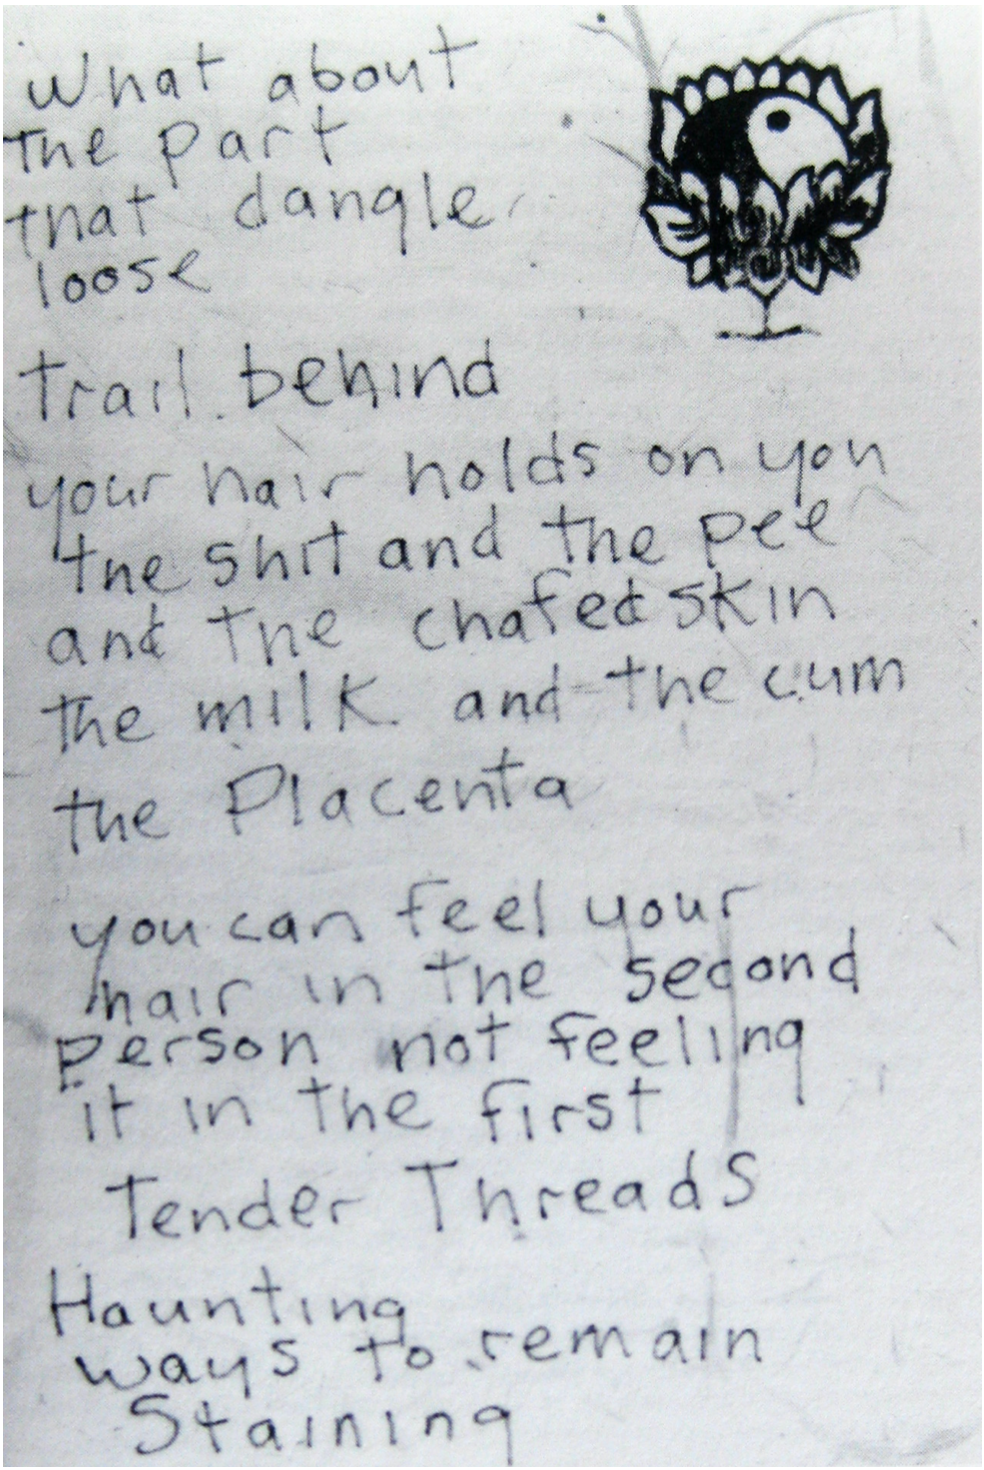 What about
the part
that dangle
loose
trail behind
your hair holds on you
the shit and the pee
and the chafed skin
the milk and the cum
the Placenta
you can feel your
hair in the second
person not feeling
it in the first
Tender Threads
Haunting
ways to remain
Staining